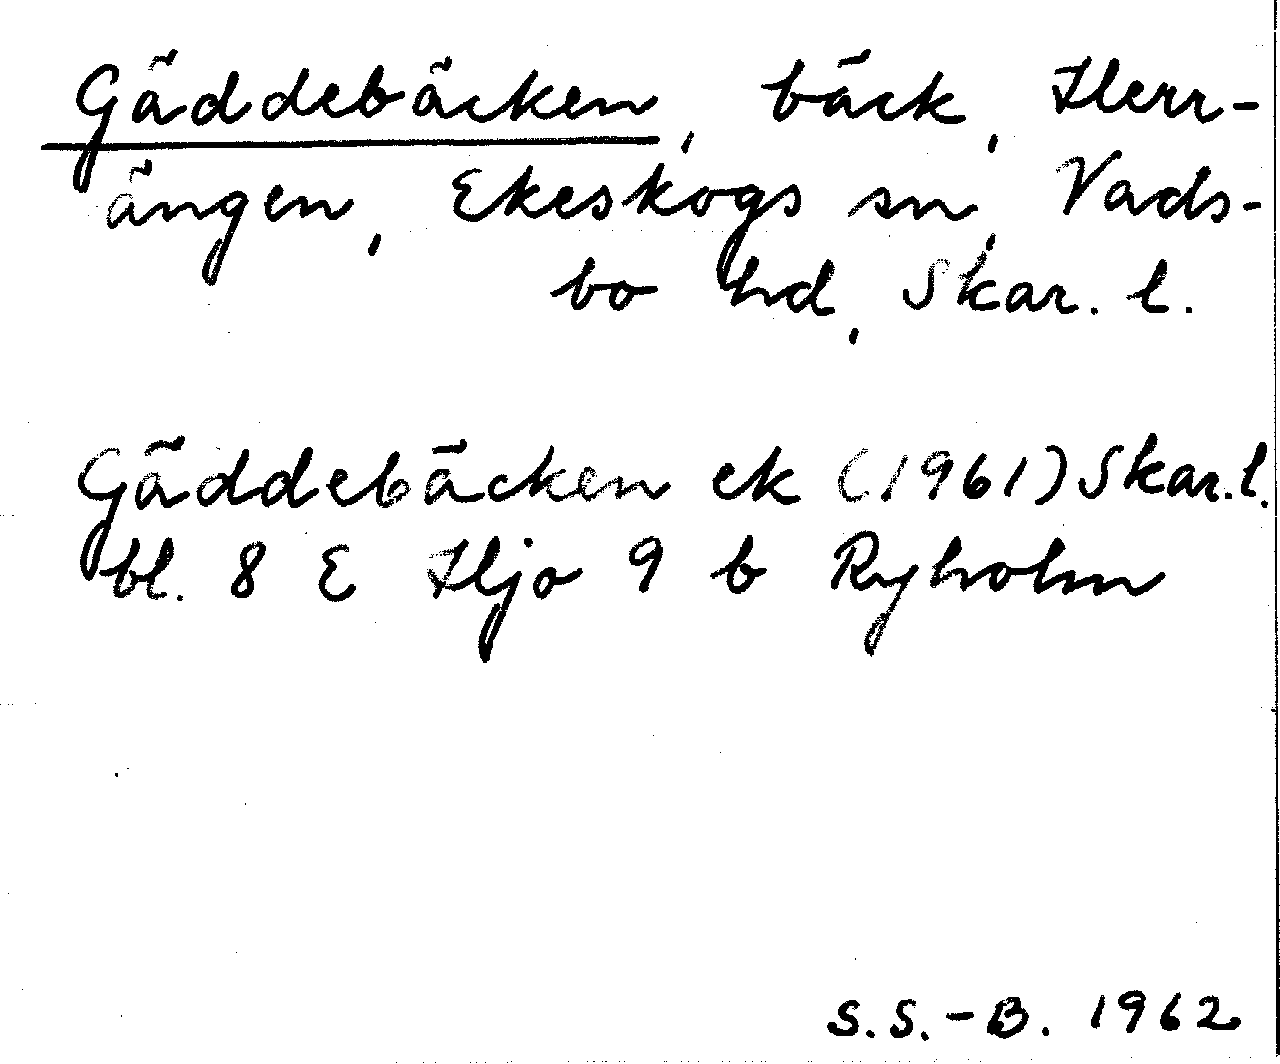 Gäddebäcken, bäck, Herr-
ängen, Ekeskogs sn, Vads-
bo hd, Skar. l.
Gäddebäcken ek (1961) Skar. l.
bl. 8 E Hjo 9 b Ryholm
S.S.-B. 1962